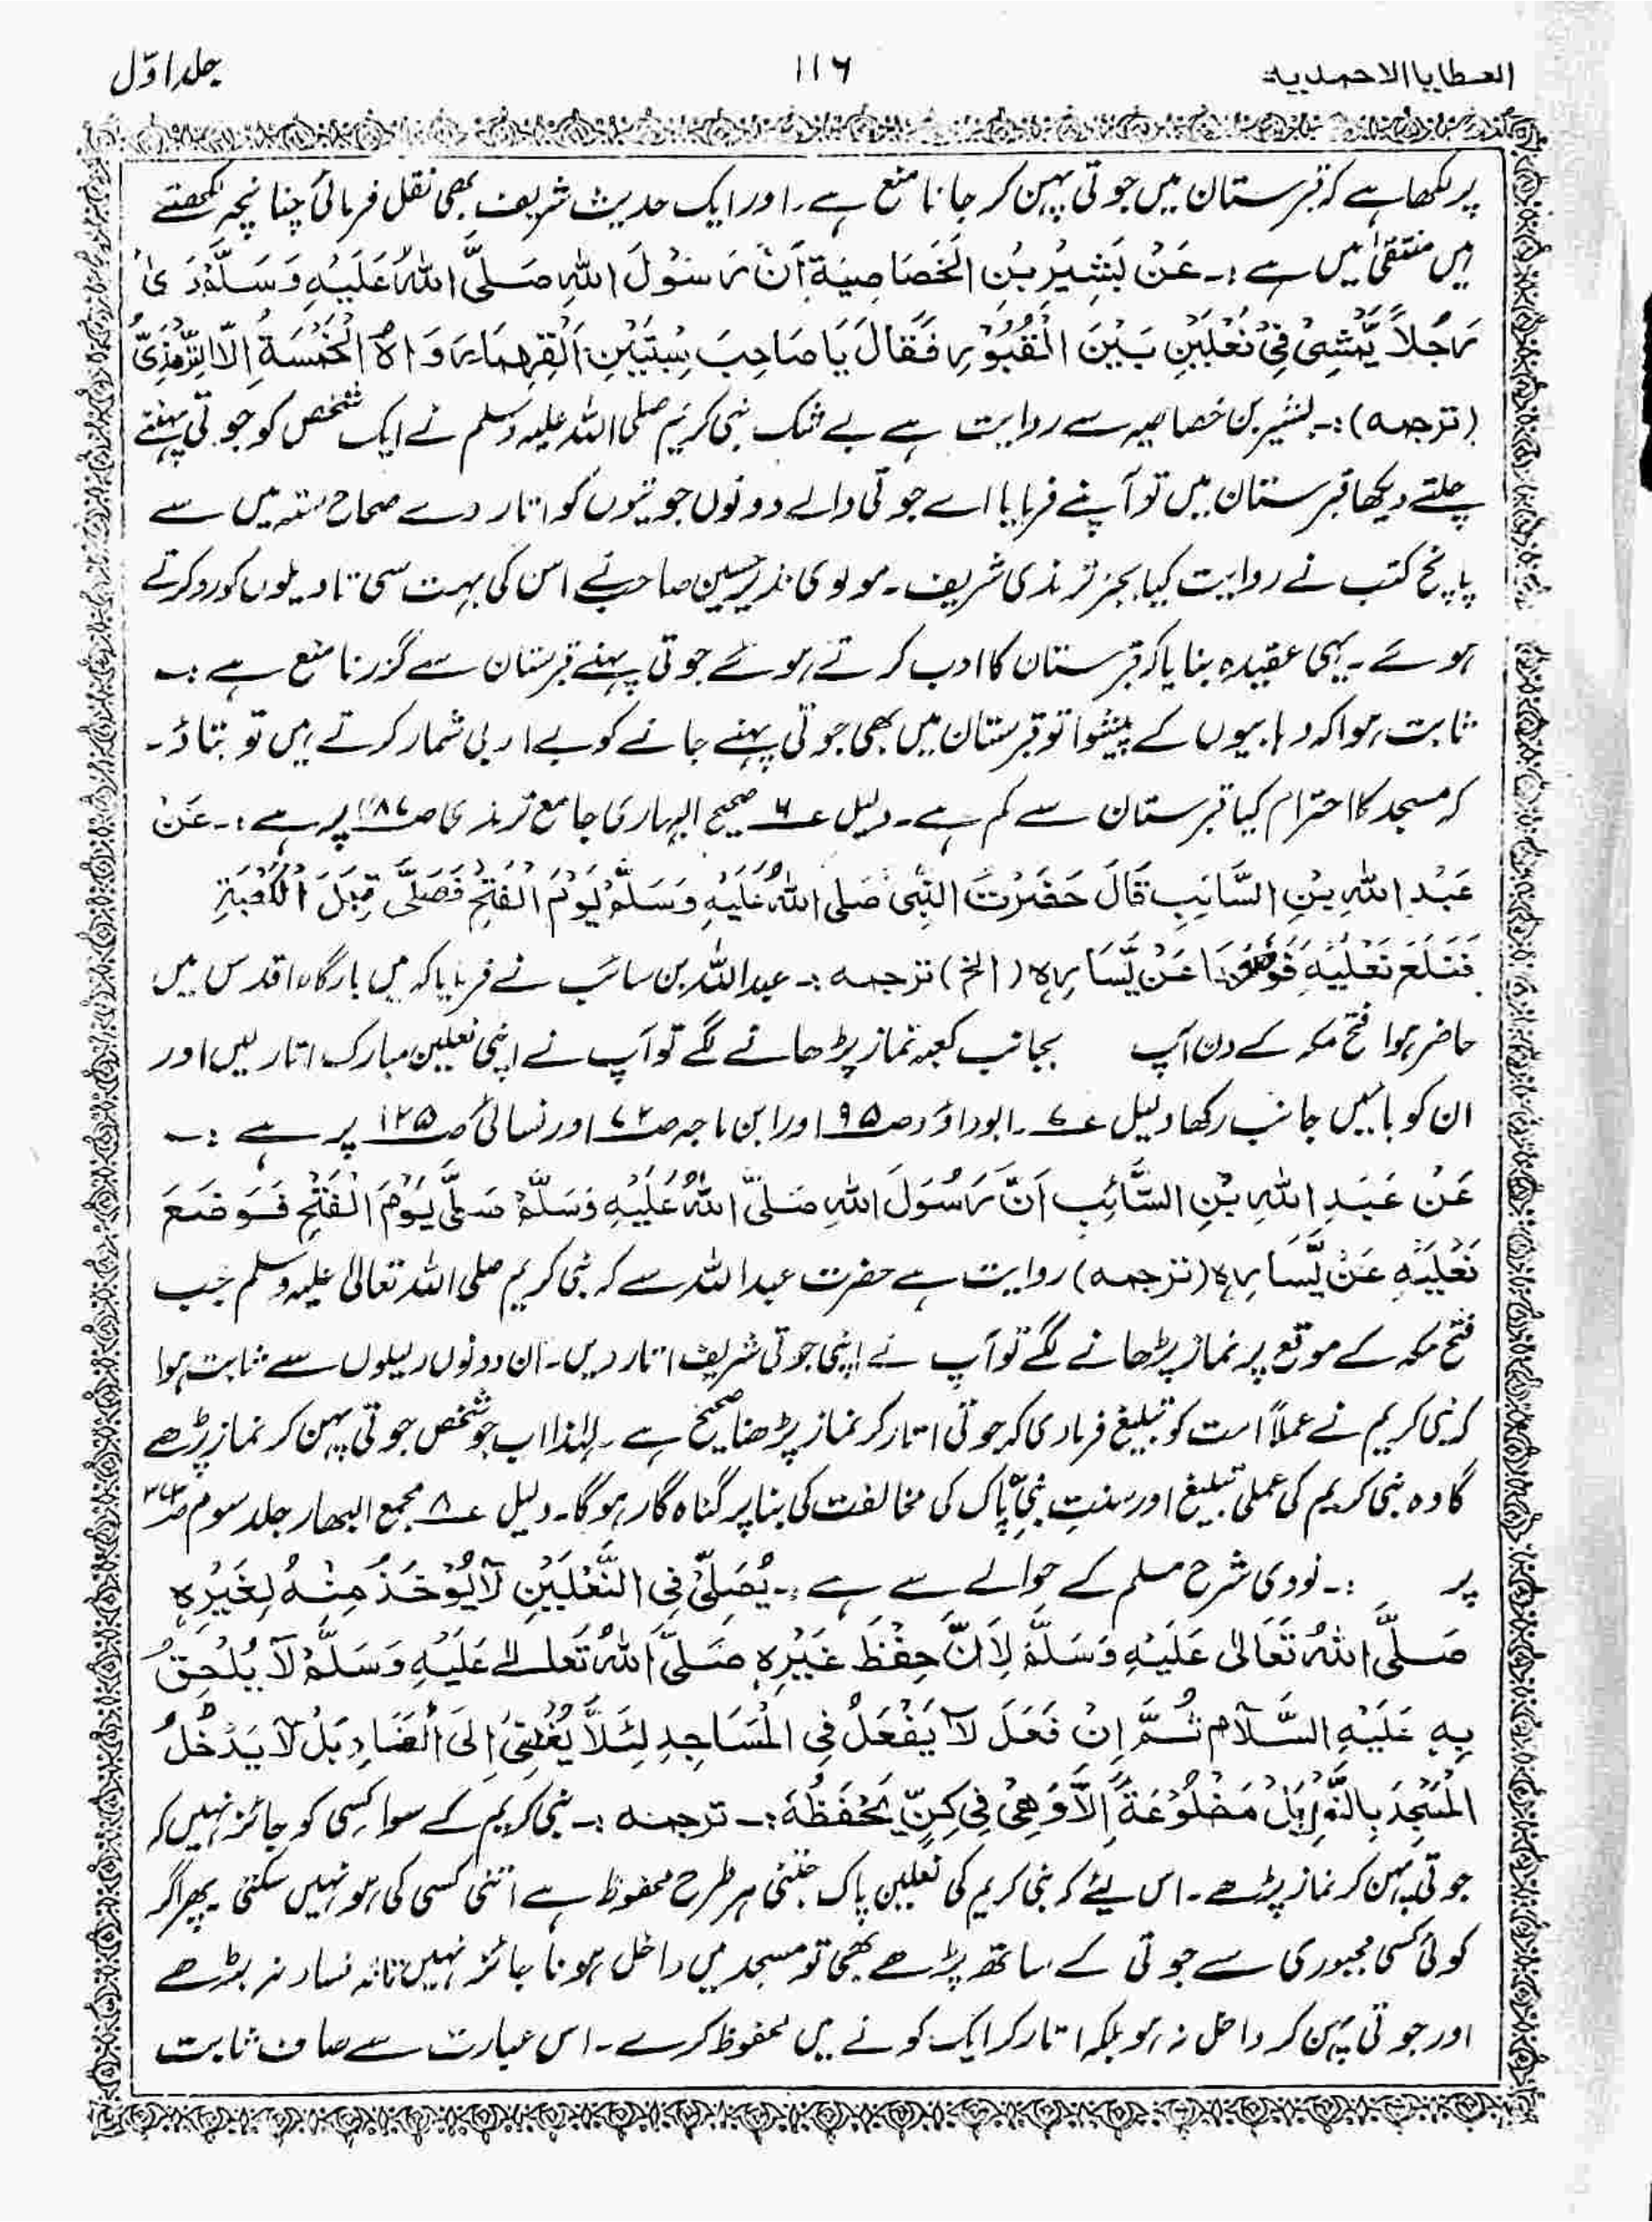 العطایا الاحمدیہ ۱۱۶ جلد اوّل
پر لکھا ہے کہ قبرستان میں جوتی پہن کر جانا منع ہے۔ اور ایک حدیث شریف بھی نقل فرمائی چنانچہ لکھتے
ہیں منتقیٰ میں ہے :۔ عَنْ بَشِیْرِ بْنِ الْخَصَاصِیَۃِ اَنَّ رَسُوْلَ اللہِ صَلَّی اللہُ عَلَیْہِ وَسَلَّمَ رَیٰ
رَجُلاً یَّمْشِیْ فِیْ نَعْلَیْنِ بَیْنَ الْقُبُوْرِ فَقَالَ یَا صَاحِبَ سِبْتَیْنِ اَلْقِہِمَا رَوَاہُ الْخَمْسَۃُ اِلَّا التِّرْمِذِیُّ
(ترجمہ) :۔ بشیر بن خصاصیہ سے روایت ہے بے شک نبی کریم صلی اللہ علیہ وسلم نے ایک شخص کو جوتی پہنے
چلتے دیکھا قبرستان میں تو آپنے فرمایا اے جوتی والے دونوں جوتیوں کو اتار دے صحاح ستہ میں سے
پانچ کتب نے روایت کیا بجز ترمذی شریف۔ مولوی نذیر حسین صاحبنے اس کی بہت سی تاویلوں کو رد کرتے
ہوئے۔ یہی عقیدہ بنایا کہ قبرستان کا ادب کرتے ہوئے جوتی پہنے قبرستان سے گزرنا منع ہے :۔
ثابت ہوا کہ وہابیوں کے پیشوا تو قبرستان میں بھی جوتی پہنے جانے کو بے ادبی شمار کرتے ہیں تو بتاؤ۔
کہ مسجد کا احترام کیا قبرستان سے کم ہے۔ دلیل ع۶ صحیح البہاری جامع ترمذی ص۱۸۷ پر ہے :۔ عَنْ
عَبْدِ اللہِ بْنِ السَّائِبِ قَالَ حَضَرْتُ النَّبِیَّ صَلَی اللہُ عَلَیْہِ وَسَلَّمَ یَوْمَ الْفَتْحِ فَصَلّٰی قِبَلَ الْکَعْبَۃِ
فَخَلَعَ نَعْلَیْہِ فَوَضَعَہَا عَنْ یَّسَارِہٖ (الخ) ترجمہ :۔ عبداللہ بن سائب نے فرمایا کہ میں بارگاہ اقدس میں
حاضر ہوا فتح مکہ کے دن آپ بجانب کعبہ نماز پڑھانے لگے تو آپ نے اپنی نعلین مبارک اتار لیں اور
ان کو بائیں جانب رکھا دلیل ع۷۔ ابوداؤد ص۹۵ اور ابن ماجہ اور نسائی ص۱۲۵ پر ہے :۔
عَنْ عَبْدِ اللہِ بْنِ السَّائِبِ اَنَّ رَسُوْلَ اللہِ صَلَّی اللہُ عَلَیْہِ وَسَلَّمَ صَلّٰی یَوْمَ الْفَتْحِ فَوَضَعَ
نَعْلَیْہِ عَنْ یَّسَارِہٖ (ترجمہ) روایت ہے حضرت عبداللہ سے کہ نبی کریم صلی اللہ تعالیٰ علیہ وسلم جب
فتح مکہ کے موقع پر نماز پڑھانے لگے تو آپ نے اپنی جوتی شریف اتار دیں۔ ان دونوں دلیلوں سے ثابت ہوا
کہ نبی کریم نے عملاً امت کو تبلیغ فرما دی کہ جوتی اتار کر نماز پڑھنا صحیح ہے۔ لہٰذا اب جو شخص جوتی پہن کر نماز پڑھے
گا وہ نبی کریم کی عملی تبلیغ اور سنتِ نبیِّ پاک کی مخالفت کی بنا پر گناہ گار ہوگا۔ دلیل ع۸ مجمع البحار جلد سوم
پر :۔ نووی شرح مسلم کے حوالے سے ہے :۔ یُصَلِّیْ فِی النَّعْلَیْنِ لَا یُؤْخَذُ مِنْہُ لِغَیْرِہٖ
صَلَّی اللہُ تَعَالٰی عَلَیْہِ وَسَلَّمَ لِاَنَّ حِفْظَ غَیْرِہٖ صَلَّی اللہُ تَعَالٰے عَلَیْہِ وَسَلَّمَ لَا یُلْحَقُ
بِہٖ عَلَیْہِ السَّلَامُ ثُمَّ اِنْ فَعَلَ لَا یَفْعَلُ فِی الْمَسَاجِدِ لِئَلَّا یُفْضِیَ اِلَی الْفَسَادِ بَلْ لَا یَدْخُلُ
الْمَسْجِدَ بِالنَّعْلِ بَلْ مَخْلُوْعَۃً اِلَّا وَھِیَ فِیْ کِنٍّ یَحْفَظُہٗ :۔ ترجمہ :۔ نبی کریم کے سوا کسی کو جائز نہیں کہ
جوتی پہن کر نماز پڑھے۔ اس لیئے کہ نبی کریم کی نعلین پاک جتنی ہر طرح محفوظ ہے اتنی کسی کی ہو نہیں سکتی پھر اگر
کوئی کسی مجبوری سے جوتی کے ساتھ پڑھے بھی تو مسجد میں داخل ہونا جائز نہیں تاکہ فساد نہ بڑھے
اور جوتی پہن کر داخل نہ ہو بلکہ اتار کر ایک کونے میں محفوظ کرے۔ اس عبارت سے صاف ثابت